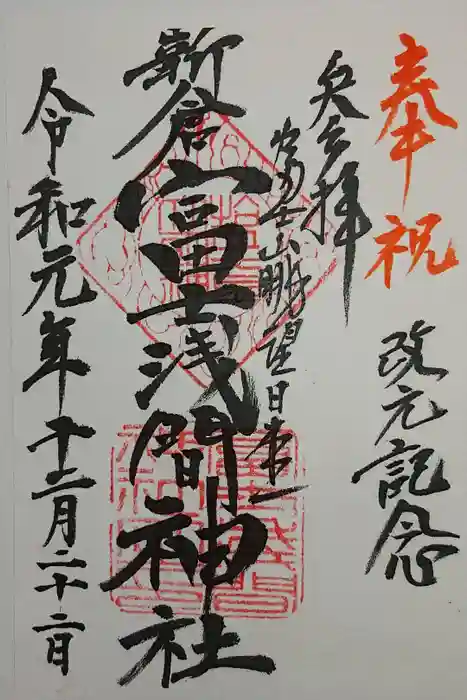 奉祝
改元記念
拝
富士山眺望日本一
新倉富士浅間神社
令和元年十二月二十二日